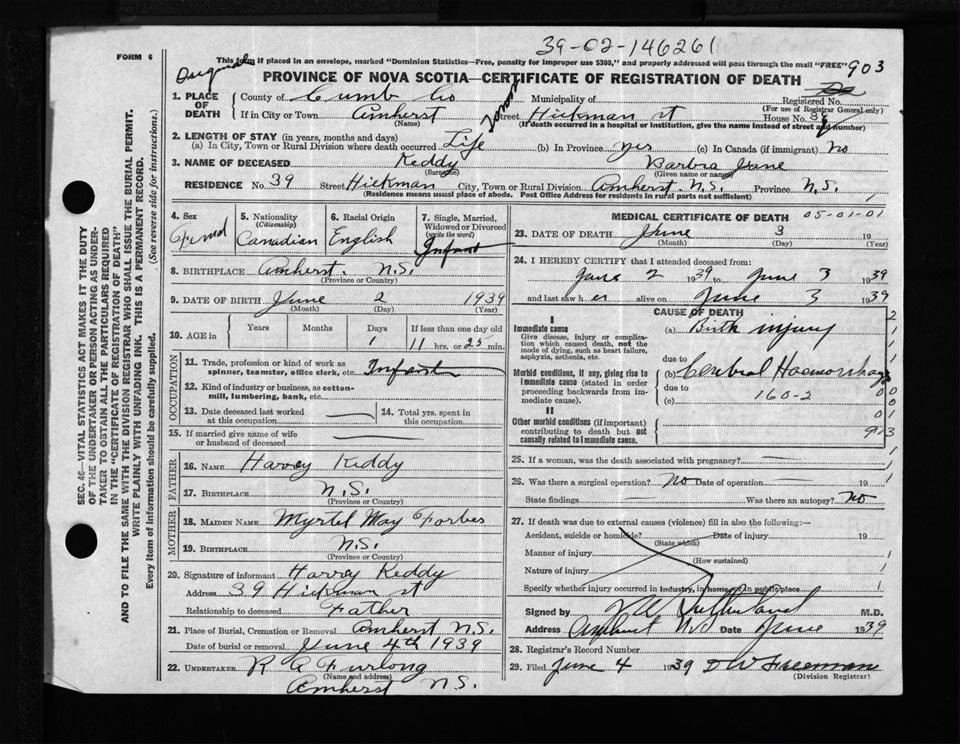 39-02-146261
FORM 6
This form if placed in an envelope, marked "Dominion Statistics—Free, penalty for improper use $300," and properly addressed will pass through the mail "FREE" 903
Original
PROVINCE OF NOVA SCOTIA—CERTIFICATE OF REGISTRATION OF DEATH
Registered No.
(For use of Registrar General only)
1. PLACE OF DEATH
County of Cumb Co Municipality of
If in City or Town Amherst Street Hickman st House No. 39
(Name) (If death occurred in a hospital or institution, give the name instead of street and number)
2. LENGTH OF STAY (in years, months and days)
(a) In City, Town or Rural Division where death occurred Life (b) In Province yes (c) In Canada (if immigrant) no
3. NAME OF DECEASED Keddy Barbra Jane
(Surname) (Given name or names)
RESIDENCE No. 39 Street Hickman City, Town or Rural Division Amherst. N.S. Province N.S.
(Residence means usual place of abode. Post Office Address for residents in rural parts not sufficient)
4. Sex
5. Nationality (Citizenship) Canadian
6. Racial Origin English
7. Single, Married, Widowed or Divorced (write the word) Infant
8. BIRTHPLACE Amherst. N.S.
(Province or Country)
9. DATE OF BIRTH June 2 1939
(Month) (Day) (Year)
10. AGE in Years Months Days If less than one day old
1 11 hrs. or 25 min.
OCCUPATION
11. Trade, profession or kind of work as spinner, teamster, office clerk, etc. Infant
12. Kind of industry or business, as cotton-mill, lumbering, bank, etc.
13. Date deceased last worked at this occupation
14. Total yrs. spent in this occupation
15. If married give name of wife or husband of deceased
FATHER
16. NAME Harvey Keddy
17. BIRTHPLACE N.S.
(Province or Country)
MOTHER
18. MAIDEN NAME Myrtel May Forbes
19. BIRTHPLACE N.S.
(Province or Country)
20. Signature of informant Harvey Keddy
Address 39 Hickman st
Relationship to deceased Father
21. Place of Burial, Cremation or Removal Amherst N.S.
Date of burial or removal June 4th 1939
22. UNDERTAKER R A Furlong
(Name and address)
Amherst N.S.
MEDICAL CERTIFICATE OF DEATH 05-01-01
23. DATE OF DEATH June 3 19
(Month) (Day) (Year)
24. I HEREBY CERTIFY that I attended deceased from:
June 2 1939 to June 3 1939
and last saw her alive on June 3 1939
CAUSE OF DEATH
I
Immediate cause
Give disease, injury or complication which caused death, not the mode of dying, such as heart failure, asphyxia, asthenia, etc.
(a) Birth injury
due to
Morbid conditions, if any, giving rise to immediate cause (stated in order proceeding backwards from immediate cause).
(b) Cerebral Haemorrhage
due to
(c) 160-2
II
Other morbid conditions (if important) contributing to death but not causally related to immediate cause.
25. If a woman, was the death associated with pregnancy?
26. Was there a surgical operation? No Date of operation 19
State findings Was there an autopsy? No
27. If death was due to external causes (violence) fill in also the following:—
Accident, suicide or homicide? Date of injury 19
(State which)
Manner of injury
(How sustained)
Nature of injury
Specify whether injury occurred in Industry, in home, or in public place
Signed by Sutherland M.D.
Address Amherst N.S Date June 1939
28. Registrar's Record Number
29. Filed June 4 1939 D W Freeman
(Division Registrar)
SEC. 46—VITAL STATISTICS ACT MAKES IT THE DUTY
OF THE UNDERTAKER OR PERSON ACTING AS UNDERTAKER TO OBTAIN ALL THE PARTICULARS REQUIRED
IN THE "CERTIFICATE OF REGISTRATION OF DEATH"
AND TO FILE THE SAME WITH THE DIVISION REGISTRAR WHO SHALL ISSUE THE BURIAL PERMIT.
WRITE PLAINLY WITH UNFADING INK. THIS IS A PERMANENT RECORD.
Every item of information should be carefully supplied. (See reverse side for instructions.)